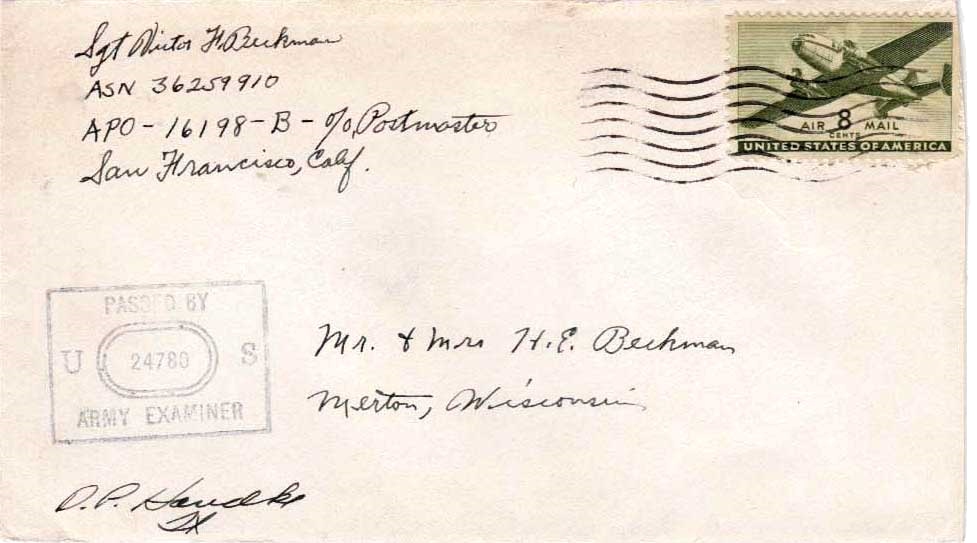 Sgt Victor H Beckman
ASN 36259910
APO - 16198 - B - c/o Postmaster
San Francisco, Calif.
AIR 8 MAIL
CENTS
UNITED STATES OF AMERICA
PASSED BY
U 24780 S
ARMY EXAMINER
Mr. & Mrs H. E. Beckman
Merton, Wisconsin
O. P.